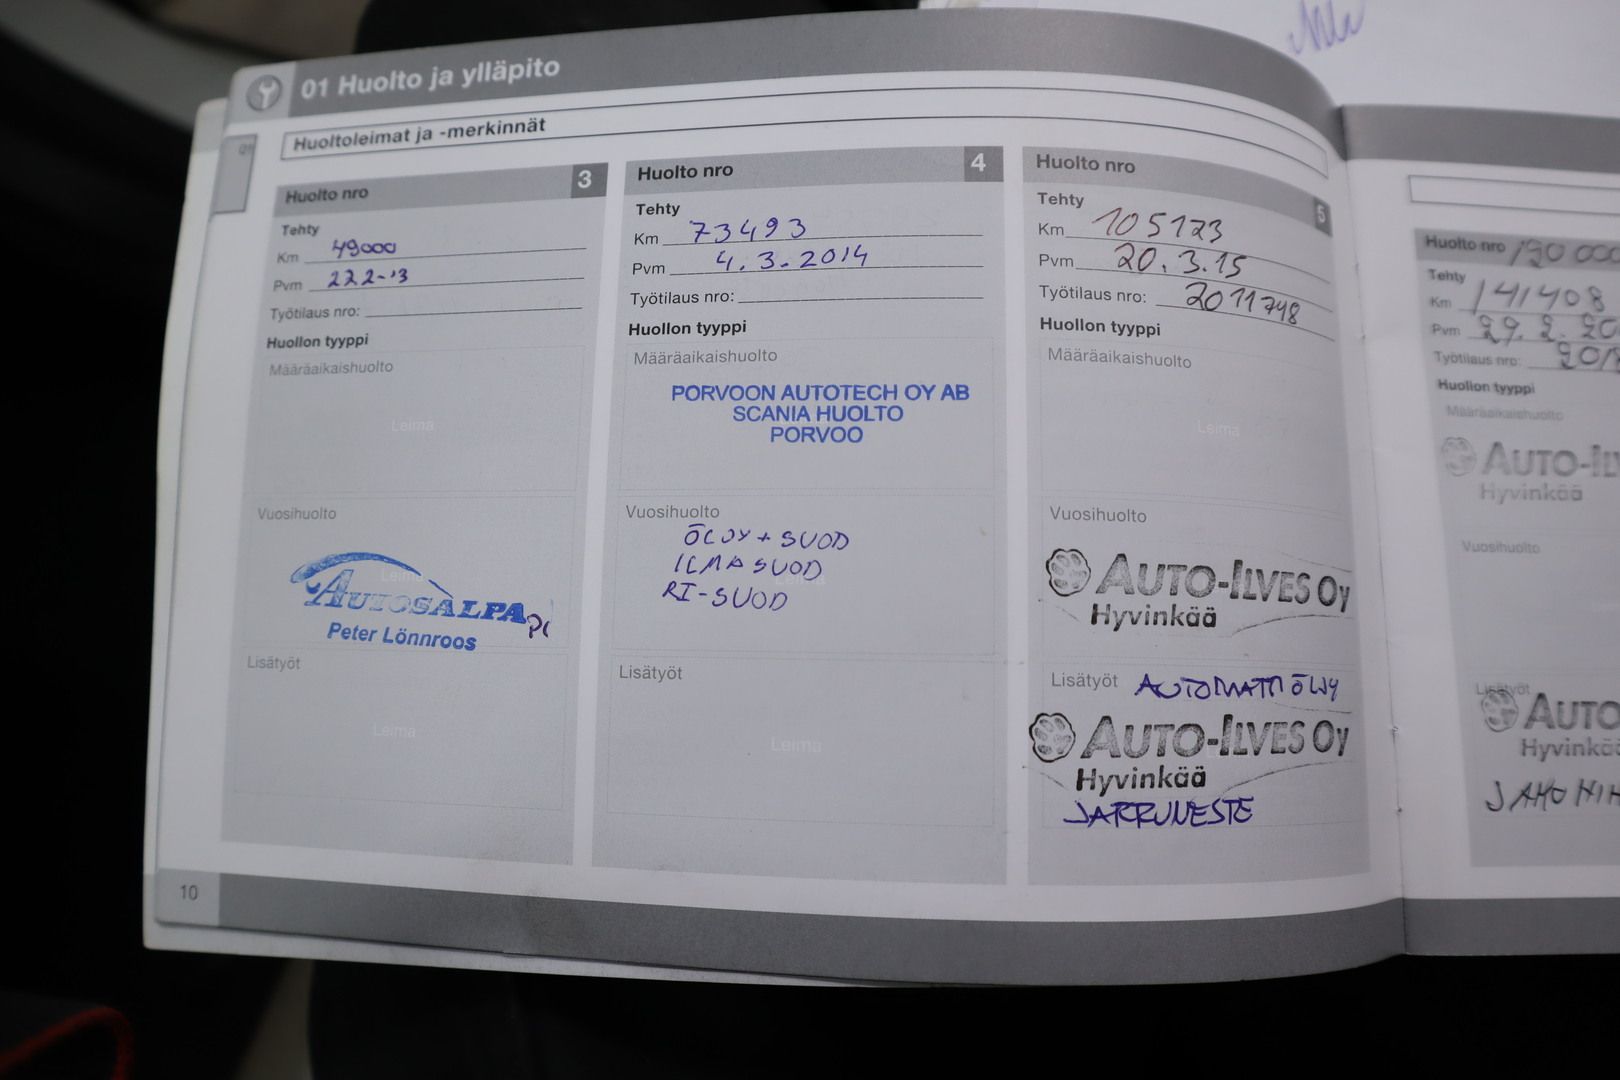 01 Huolto ja ylläpito
01
Huoltoleimat ja -merkinnät
Huolto nro 3
Tehty
Km 49000
Pvm 22.2-13
Työtilaus nro:
Huollon tyyppi
Määräaikaishuolto
Leima
Vuosihuolto
Leima
AUTOSALPA
Peter Lönnroos
Lisätyöt
Leima
10
Huolto nro 4
Tehty
Km 73493
Pvm 4.3.2014
Työtilaus nro:
Huollon tyyppi
Määräaikaishuolto
PORVOON AUTOTECH OY AB
SCANIA HUOLTO
PORVOO
Vuosihuolto
ÖLJY + SUOD
ILMASUOD
RI-SUOD
Lisätyöt
Leima
Huolto nro 5
Tehty
Km 105123
Pvm 20.3.15
Työtilaus nro: 2011748
Huollon tyyppi
Määräaikaishuolto
Leima
Vuosihuolto
AUTO-ILVES OY
Hyvinkää
Lisätyöt AUTOMATTIÖLJY
AUTO-ILVES OY
Hyvinkää
JARRUNESTE
Huolto nro 190 000
Tehty
Km 141408
Pvm 29.2.20
Työtilaus nro: 2018
Huollon tyyppi
Määräaikaishuolto
AUTO-IL
Hyvinkää
Vuosihuolto
Lisätyöt
AUTO
Hyvinkää
JAKOHIH